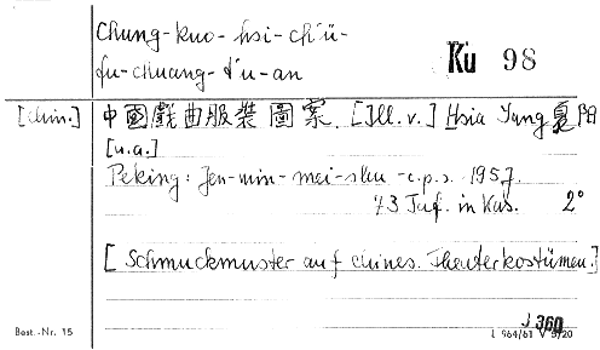 Chung-kuo-hsi-ch'ü-
fu-chuang-t'u-an
Ku 98
[chin.] 中國戲曲服裝圖案. [Ill. v.] Hsia Yang 夏阳
[u.a.]
Peking: Jen-min-mei-shu-c.p.s. 1957.
73 Taf. in Kas. 2°
[Schmuckmuster auf chines. Theaterkostümen.]
J 360
Best.-Nr. 15
L 964/61 V 5/20